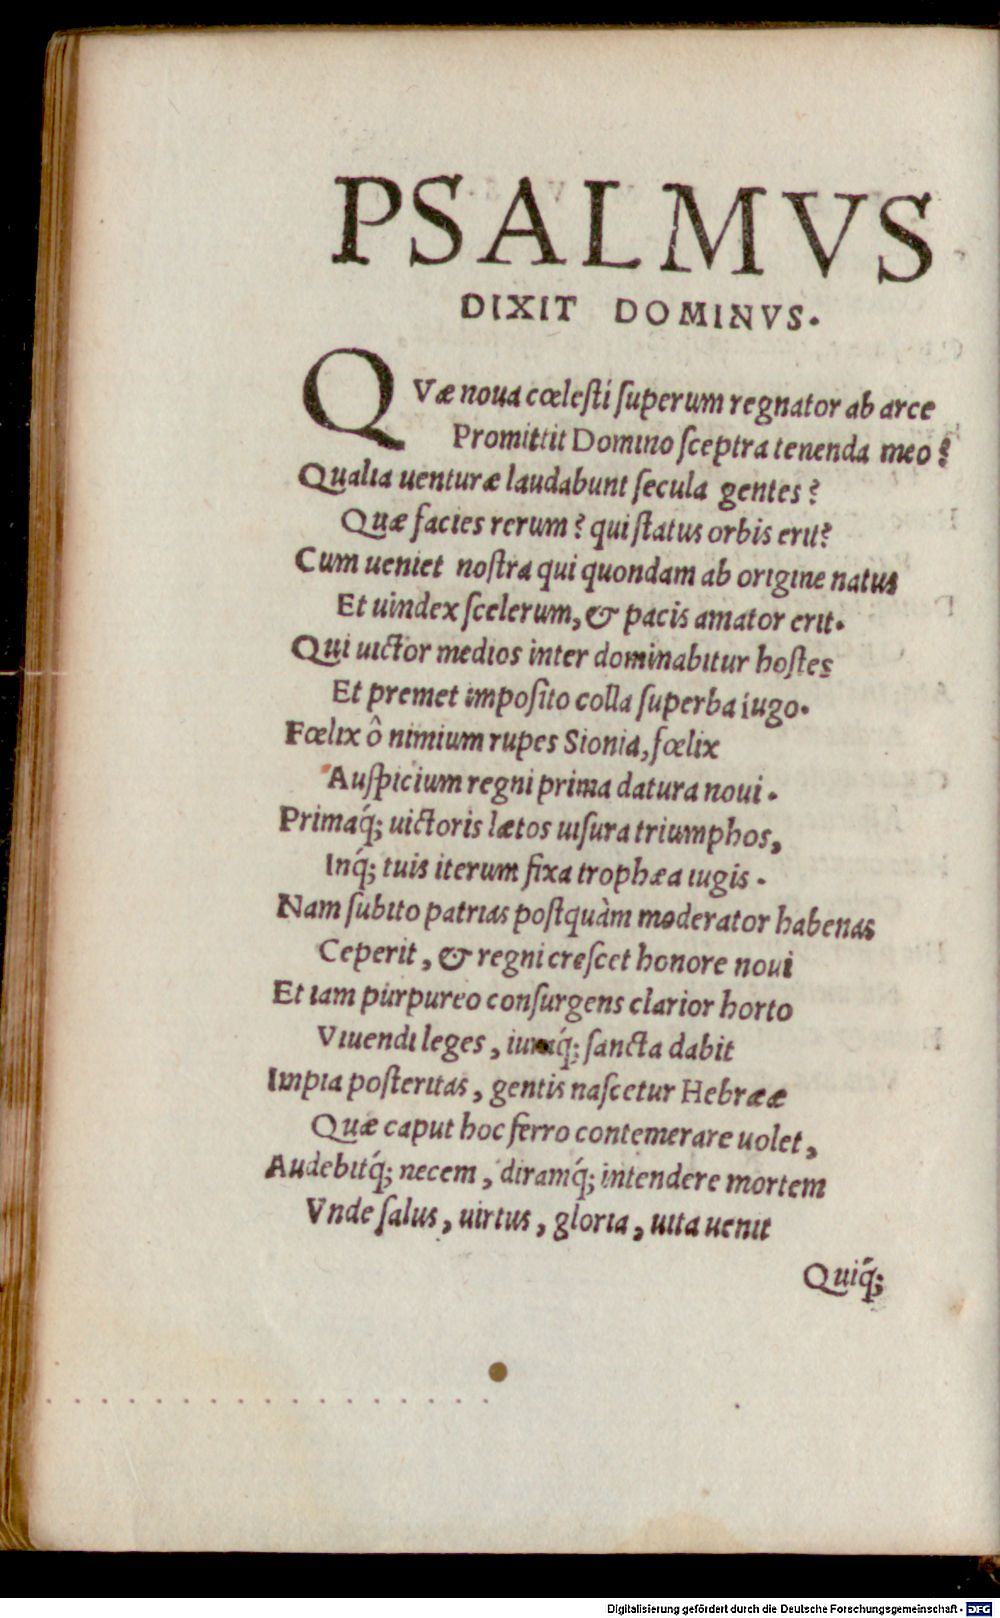 PSALMVS
DIXIT DOMINVS.
QVæ noua cœlesti superum regnator ab arce
Promittit Domino sceptra tenenda meo?
Qualia uenturæ laudabunt secula gentes?
Quæ facies rerum? qui status orbis erit?
Cum ueniet nostra qui quondam ab origine natus
Et uindex scelerum, & pacis amator erit.
Qui uictor medios inter dominabitur hostes
Et premet imposito colla superba iugo.
Fœlix ô nimium rupes Sionia, fœlix
Auspicium regni prima datura noui.
Primaq́; uictoris lætos uisura triumphos,
Inq́; tuis iterum fixa trophæa iugis.
Nam subito patrias postquàm moderator habenas
Ceperit, & regni crescet honore noui
Et iam purpureo consurgens clarior horto
Viuendi leges, iuraq́; sancta dabit
Impia posteritas, gentis nascetur Hebrææ
Quæ caput hoc ferro contemerare uolet,
Audebitq́; necem, diramq́; intendere mortem
Vnde salus, uirtus, gloria, uita uenit
Quiq́;
Digitalisierung gefördert durch die Deutsche Forschungsgemeinschaft - DFG